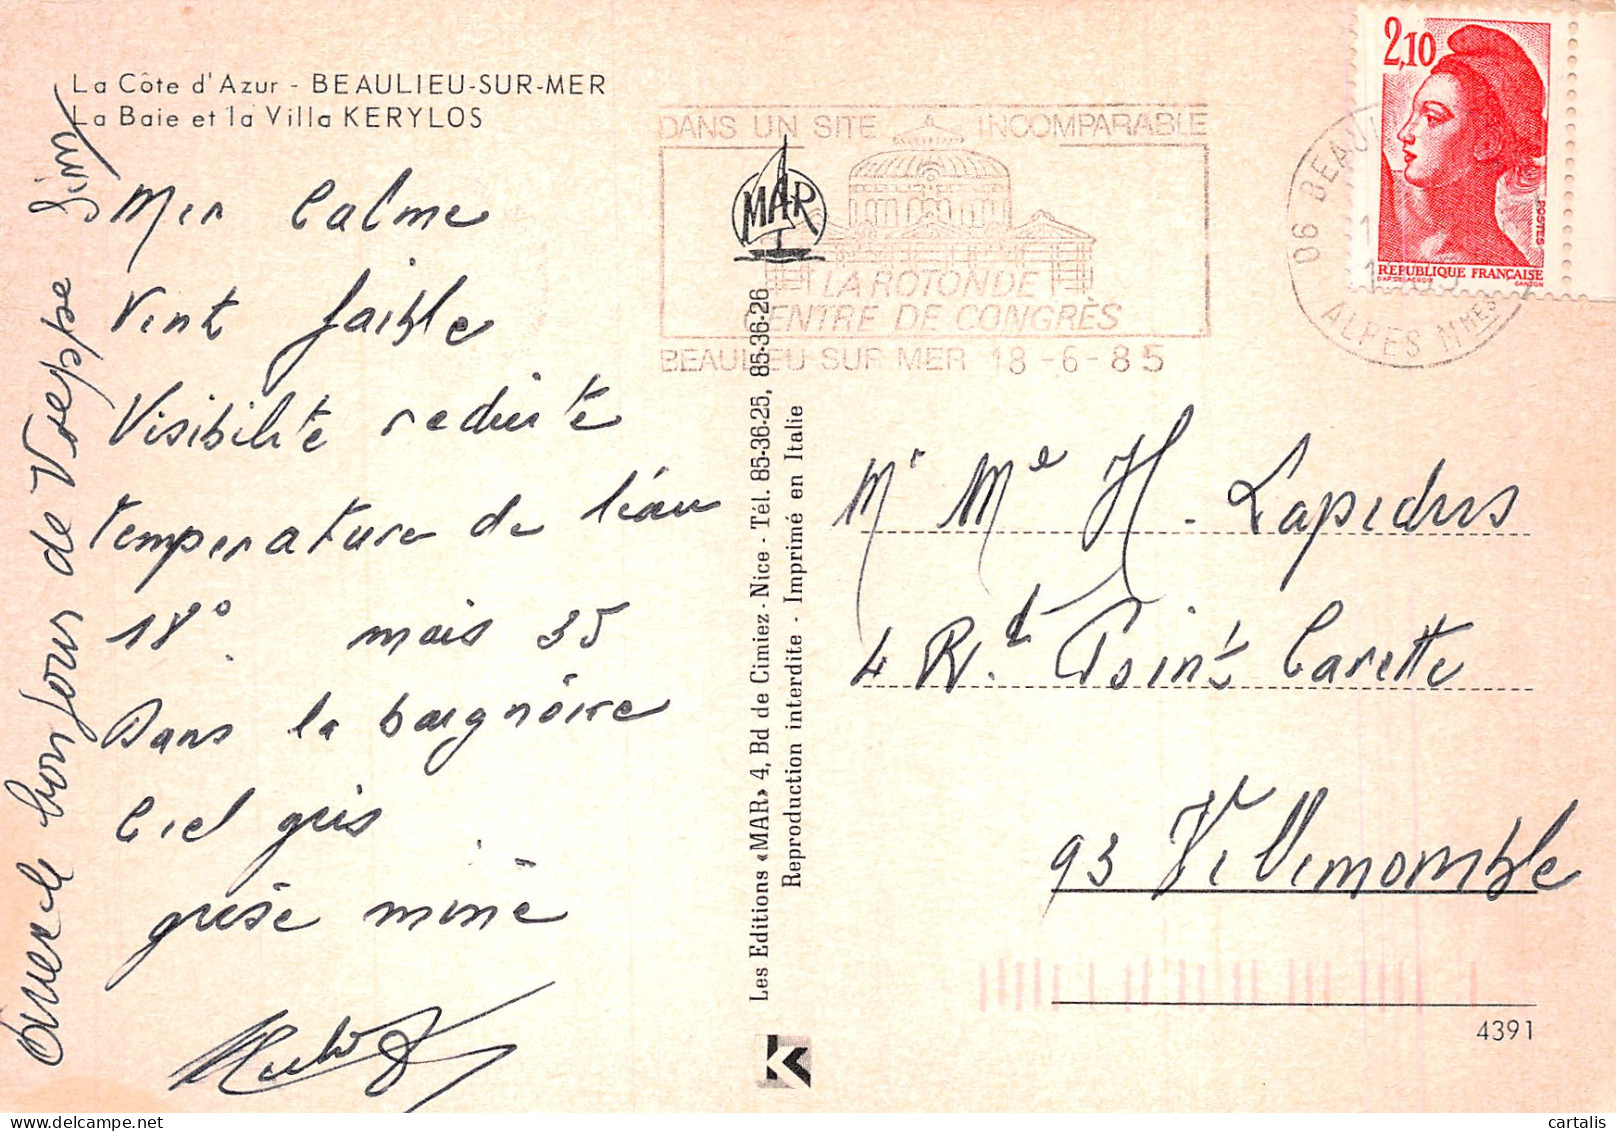 La Côte d'Azur - BEAULIEU-SUR-MER
La Baie et la Villa KERYLOS
Mer Calme
Vent faible
Visibilité reduite
temperature de l'eau
18° mais 35
Dans la baignoire
Ciel gris
grise mine
bonjour de
DANS UN SITE INCOMPARABLE
LA ROTONDE
CENTRE DE CONGRÈS
BEAULIEU SUR MER 18-6-85
MAR
Les Editions «MAR» 4, Bd de Cimiez - Nice - Tél. 85-36-25, 85-36-26
Reproduction interdite - Imprimé en Italie
K
2,10
POSTES
REPUBLIQUE FRANÇAISE
GANDON
06 BEAU
ALPES MMES
Mr Me H. Lapidus
4 Rd Point Carette
93 Villemomble
4391